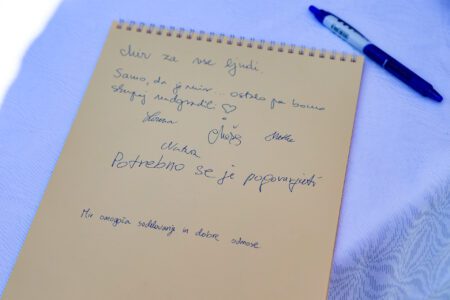 Mir za vse ljudi.
Samo, da je mir... ostalo pa bomo
skupaj nadgradili ♡
Nataša
Potrebno se je pogovarjati
Mir omogoča sodelovanje in dobre odnose